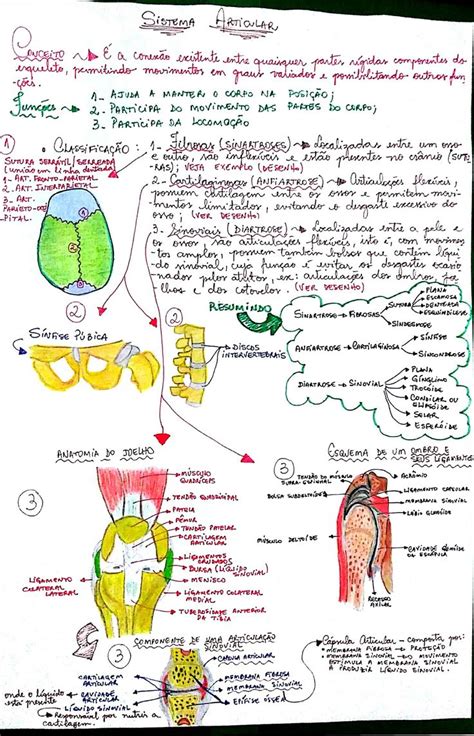 SISTEMA ARTICULAR
CONCEITO → É A conexão existente entre quaisquer partes rígidas componentes do
esqueleto, permitindo movimentos em graus variados e possibilitando outras fun-
ções.
Funções → 1- AJUDA A MANTER O CORPO NA POSIÇÃO;
2- PARTICIPA DO MOVIMENTO DAS PARTES DO CORPO;
3- PARTICIPA DA LOCOMOÇÃO
1
• CLASSIFICAÇÃO:
SUTURA SERRÁTIL/SERREADA
(união em linha dentada)
1- ART. FRONTO PARIETAL
2. ART. INTERPARIETAL
3. ART.
PARIETO-OCCI
PITAL
1- Fibrosas (SINARTROSES) → Localizadas entre um osso
e outro, são inflexíveis e estão presentes no crânio (SUTU-
RAS); VEJA EXEMPLO (DESENHO)
2- Cartilaginosas (ANFIARTROSE) → Articulações flexíveis;
possuem cartilagem entre os ossos e permitem movi-
mentos limitados, evitando o desgaste excessivo do
osso; (VER DESENHO)
3- Sinoviais (DIARTROSE) → Localizadas entre a pele e
os ossos, são articulações flexíveis, isto é, com movimen-
tos amplos, possuem também bolsas que contém líqui-
do sinovial, cuja função é evitar os desgastes ocasio-
nados pelos atritos, ex: articulações dos ombros, joe-
lhos e dos cotovelos. (VER DESENHO)
RESUMINDO
SINARTROSE → FIBROSAS
SUTURA
PLANA
ESCAMOSA
DENTEADA
ESQUINDILESE
SINDESMOSE
ANFIARTROSE → CARTILAGINOSA
SÍNFISE
SINCONDROSE
DIARTROSE → SINOVIAL
PLANA
GÍNGLIMO
TROCÓIDE
CONDILAR OU
ELIPSÓIDE
SELAR
ESFERÓIDE
2
SÍNFISE PÚBICA
2
DISCOS
INTERVERTEBRAIS
ANATOMIA DO JOELHO
3
MÚSCULO
QUADRÍCEPS
TENDÃO QUADRICIPITAL
PATELA
FÊMUR
TENDÃO PATELAR
CARTILAGEM
ARTICULAR
LIGAMENTOS
CRUZADOS
BURSA (LÍQUIDO
SINOVIAL)
MENISCO
LIGAMENTO COLATERAL
MEDIAL
TUBEROSIDADE ANTERIOR
DA TÍBIA
LIGAMENTO
COLATERAL
LATERAL
ESQUEMA DE UM OMBRO E
SEUS LIGAMENTOS
3
TENDÃO DO MÚSCULO
SUPRA-ESPINHAL
BURSA SUBDELTÓIDE
MÚSCULO DELTÓIDE
ACRÔMIO
LIGAMENTO CAPSULAR
MEMBRANA SINOVIAL
LÁBIO GLENÓIDE
CAVIDADE GLENÓIDE
DA ESCÁPULA
RECESSO
AXILAR
3
COMPONENTE DE UMA ARTICULAÇÃO
SINOVIAL
CÁPSULA ARTICULAR
MEMBRANA FIBROSA
MEMBRANA SINOVIAL
EPÍFISE ÓSSEA
CARTILAGEM
ARTICULAR
CAVIDADE
ARTICULAR
LÍQUIDO SINOVIAL
onde o líquido
está presente
→ Responsável por nutrir a
cartilagem.
Cápsula Articular - composta por:
MEMBRANA FIBROSA → PROTEÇÃO
MEMBRANA SINOVIAL → O MOVIMENTO
ESTIMULA A MEMBRANA SINOVIAL
A PRODUZIR LÍQUIDO SINOVIAL.